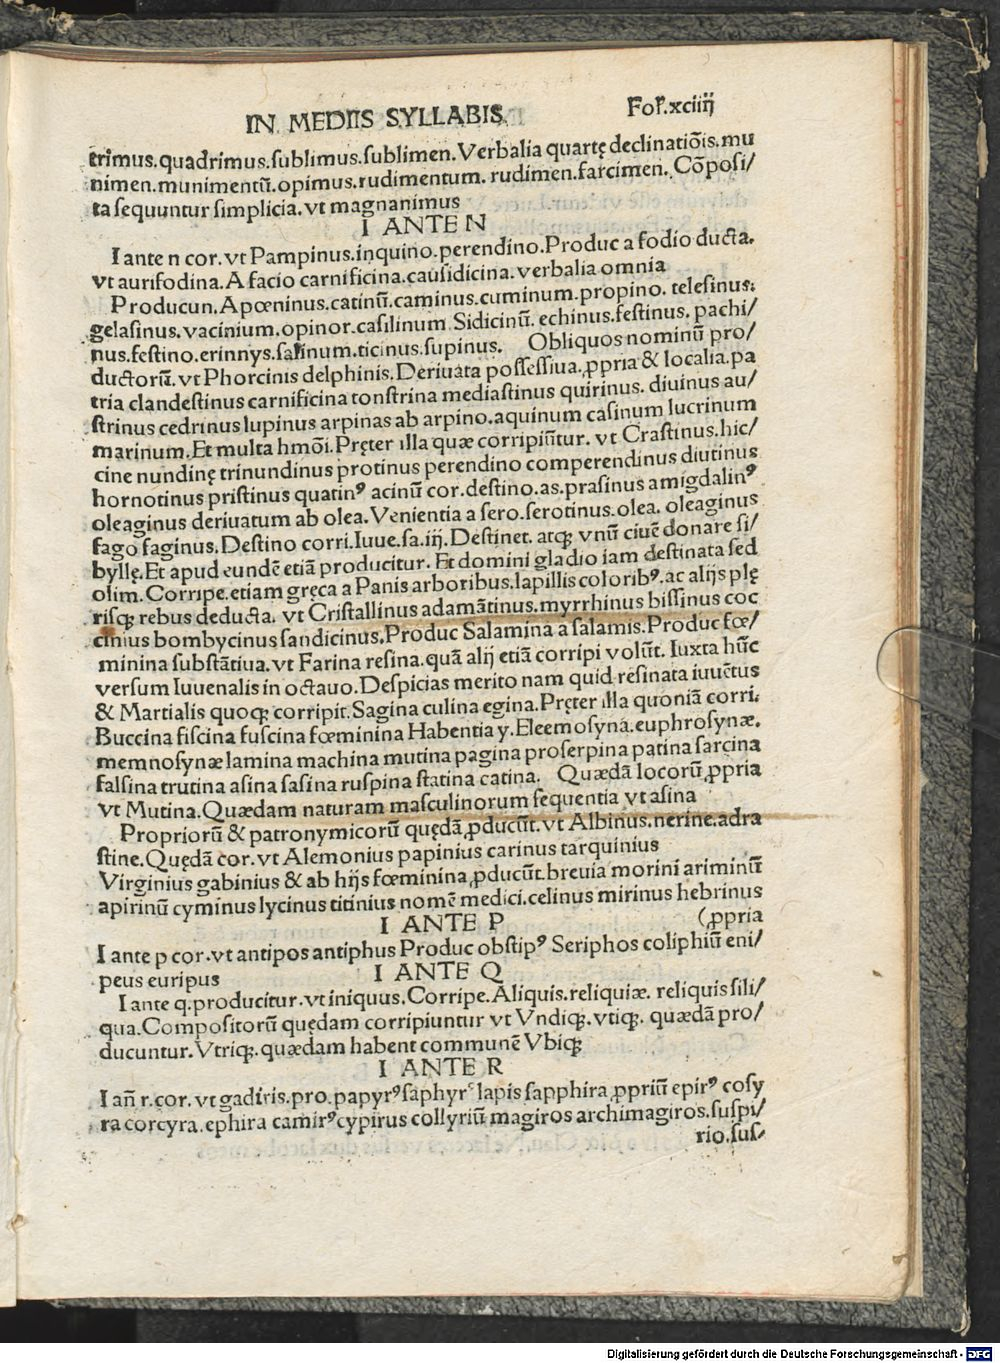 IN MEDIIS SYLLABIS. Fol.xciiij
trimus.quadrimus.sublimus.sublimen.Verbalia quartę declinatiōis.mu
nimen.munimentū.opimus.rudimentum.rudimen.farcimen.Cōposi/
ta sequuntur simplicia.vt magnanimus
I ANTE N
I ante n cor.vt Pampinus.inquino.perendino.Produc a fodio ducta.
vt aurifodina.A facio carnificina.causidicina.verbalia omnia
Producun.Apœninus.catinū.caminus.cuminum.propino.telesinus.
gelasinus.vacinium.opinor.casilinum.Sidicinū.echinus.festinus.pachi/
nus.festino.erinnys.salinum.ticinus.supinus. Obliquos nominū pro/
ductoriū.vt Phorcinis delphinis.Deriuata possessiua.ꝓpria & localia.pa
tria clandestinus carnificina tonstrina mediastinus quirinus.diuinus au/
strinus cedrinus lupinus arpinas ab arpino.aquinum casinum lucrinum
marinum.Et multa hmōi.Pręter illa quæ corripiūtur.vt Crastinus.hic/
cine nundinę trinundinus protinus perendino comperendinus diutinus
hornotinus pristinus quatinꝰ acinū cor.destino.as.prasinus amigdalinꝰ
oleaginus deriuatum ab olea.Venientia a sero.serotinus.olea.oleaginus
fago faginus.Destino corri.Iuue.sa.iij.Destinet.atqꝫ vnū ciuē donare si/
byllę.Et apud eundē etiā producitur.Et domini gladio iam destinata sed
olim.Corripe.etiam gręca a Panis arboribus.lapillis coloribꝰ.ac alijs plę
risqꝫ rebus deducta.vt Cristallinus adamātinus.myrrhinus bissinus coc
cinius bombycinus sandicinus.Produc Salamina a salamis.Produc fœ/
minina substātiua.vt Farina resina.quā alij etiā corripi volūt.Iuxta hūc
versum Iuuenalis in octauo.Despicias merito nam quid resinata iuuētus
& Martialis quoqꝫ corripit.Sagina culina egina.Pręter illa quoniā corri.
Buccina fiscina fuscina fœminina Habentia y.Eleemosyna.euphrosynæ.
memnosynæ lamina machina mutina pagina proserpina patina sarcina
falsina trutina asina sasina ruspina statina catina. Quædā locorū ꝓpria
vt Mutina.Quædam naturam masculinorum sequentia vt asina
Propriorū & patronymicorū quędā ꝓducūt.vt Albinus.nerine.adra
stine.Quędā cor.vt Alemonius papinius carinus tarquinius
Virginius gabinius & ab hijs fœminina ꝓducūt.breuia morini ariminū
apirinū cyminus lycinus titinius nomē medici.celinus mirinus hebrinus
I ANTE P (ꝓpria
I ante p cor.vt antipos antiphus Produc obstipꝰ Seriphos coliphiū eni/
peus euripus I ANTE Q
I ante q.producitur.vt iniquus.Corripe.Aliquis.reliquiæ.reliquis sili/
qua.Compositorū quędam corripiuntur vt Vndiqꝫ.vtiqꝫ.quædā pro/
ducuntur.Vtriqꝫ.quædam habent communē Vbiqꝫ
I ANTE R
I añ r.cor.vt gadiris.pro.papyrꝰ saphyrꝰ lapis sapphira ꝓpriū epirꝰ cosy
ra corcyra.ephira camirꝰ cypirus collyriū magiros archimagiros.suspi/
rio.sus-
Digitalisierung gefördert durch die Deutsche Forschungsgemeinschaft - DFG